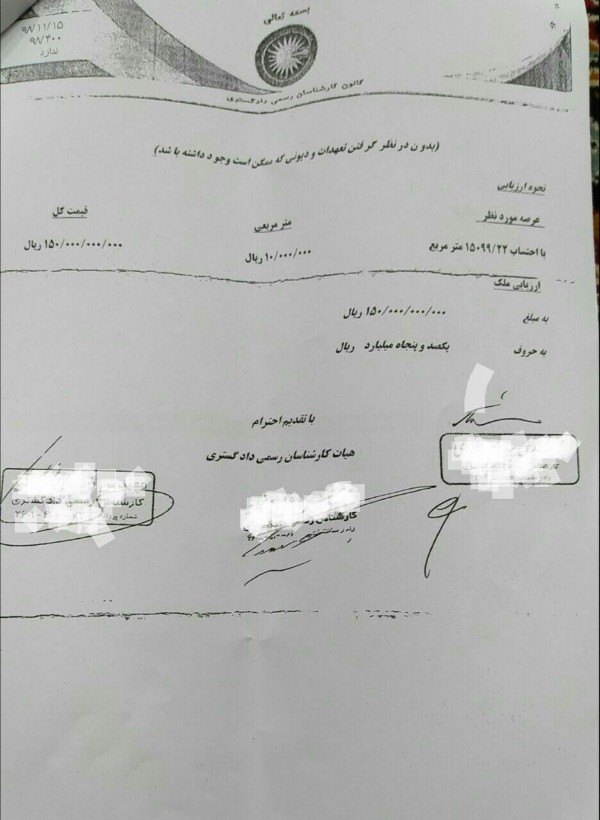 بسمه تعالی
۹۸/۱۱/۱۵
۹۸/۴۰۰
ندارد
کانون کارشناسان رسمی دادگستری
(بدون در نظر گرفتن تعهدات و دیونی که ممکن است وجود داشته باشد)
نحوه ارزیابی
عرصه مورد نظر متر مربعی قیمت کل
با احتساب ۱۵۰۹۹/۲۲ متر مربع ۱۰/۰۰۰/۰۰۰ ریال ۱۵۰/۰۰۰/۰۰۰/۰۰۰ ریال
ارزیابی ملک
به مبلغ ۱۵۰/۰۰۰/۰۰۰/۰۰۰ ریال
به حروف یکصد و پنجاه میلیارد ریال
با تقدیم احترام
هیات کارشناسان رسمی دادگستری
کارشناس رسمی دادگستری